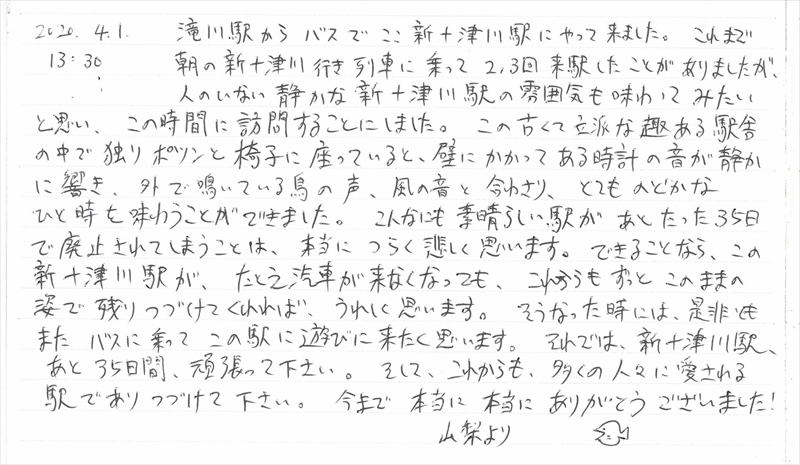 2020. 4. 1. 滝川駅から バスで ここ 新十津川駅に やって来ました。 これまで
13:30 朝の新十津川行き列車に乗って 2,3回 来駅したことがありましたが、
人のいない 静かな 新十津川駅の雰囲気も味わってみたい
と思い、この時間に訪問することにしました。 この古くて立派な趣ある駅舎
の中で独りポツンと椅子に座っていると、壁にかかってある時計の音が静か
に響き、外で鳴いている鳥の声、風の音と合わさり、とてものどかな
ひと時を味わうことができました。 こんなにも素晴らしい駅が あとたった35日
で廃止されてしまうことは、本当につらく悲しく思います。できることなら、この
新十津川駅が、たとえ汽車が来なくなっても、これからもずっとこのままの
姿で残りつづけてくれれば、うれしく思います。 そうなった時には、是非とも
また バスに乗って この駅に遊びに来たく思います。 それでは、新十津川駅、
あと35日間、頑張って下さい。 そして、これからも、多くの人々に愛される
駅でありつづけて下さい。 今まで 本当に 本当に ありがとうございました!
山梨より